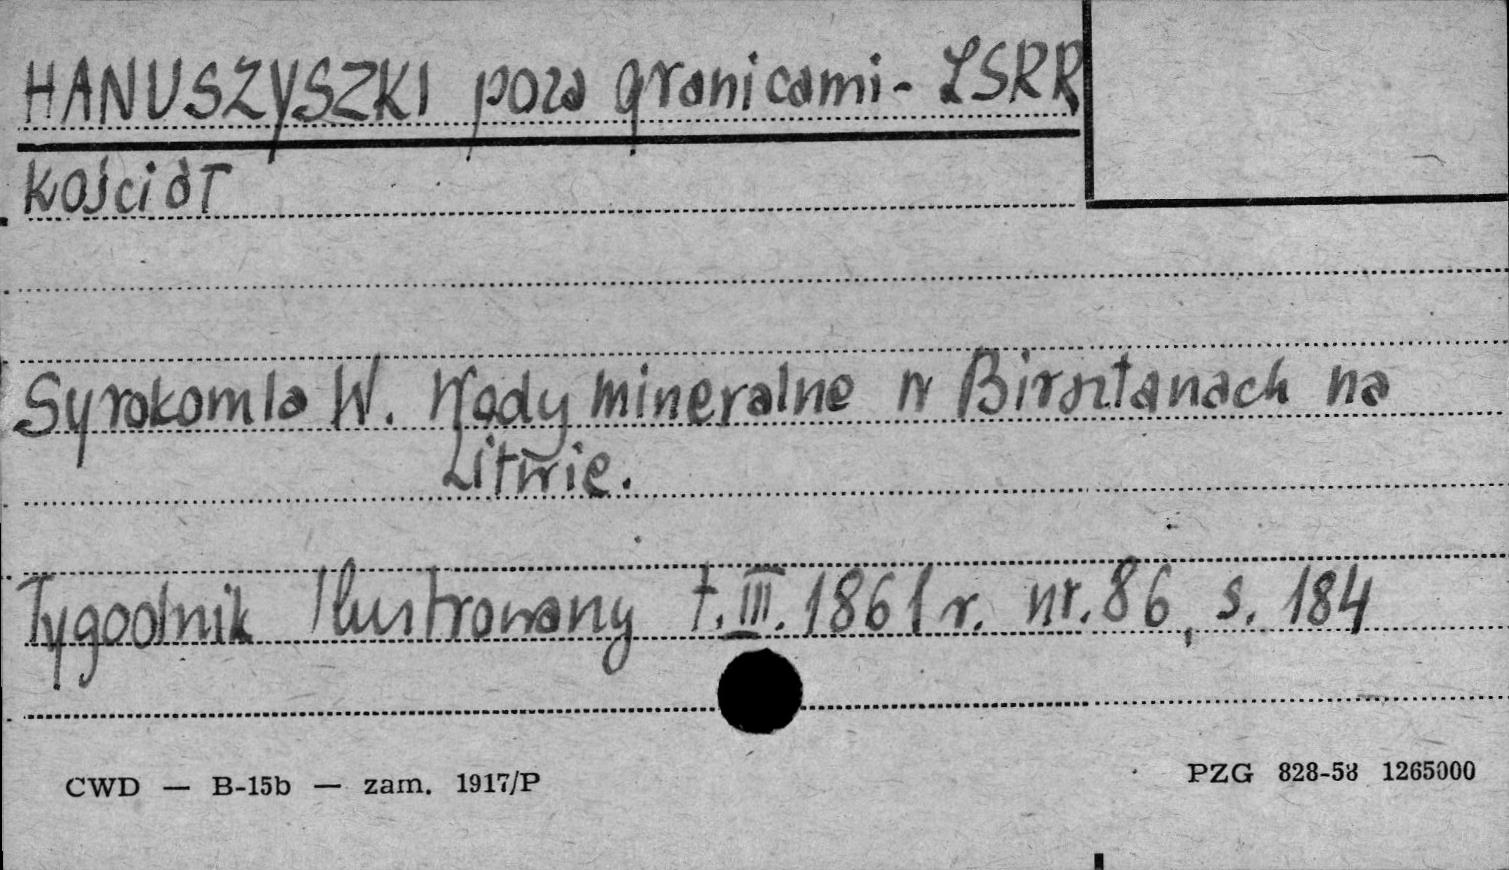 HANUSZYSZKI poza granicami - LSRR
Kościół
Syrokomla W. Wody mineralne w Birsztanach na
Litwie.
Tygodnik Ilustrowany t. III. 1861 r. nr. 86, s. 184
CWD — B-15b — zam. 1917/P
PZG 828-58 1265000